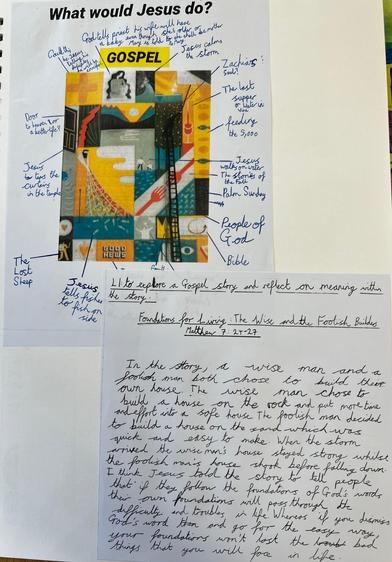 What would Jesus do?
God tells priest his wife will have
a baby even though she's older or
Mary is told she shall be mother
GOSPEL
Jesus calms
the storm
Zacharias'
The last
supper
feeding
the 5,000
Door
to heaven
a better life?
Jesus
walks on water
The stories of
Palm Sunday
Jesus
the
curtains
in the temple
People of
God
Bible
GOOD
NEWS
The
Lost
Sheep
Jesus
tells fisher
to fish on
side
L.I to explore a Gospel story and reflect on meaning within
the story.
Foundations for Living: The Wise and the Foolish Builders
Matthew 7:24-27
In the story, a wise man and a
foolish man both chose to build their
own house. The wise man chose to
build a house on the rock and put more time
and effort into a safe house. The foolish man decided
to build a house on the sand which was
quick and easy to make. When the storm
arrived the wise man's house stayed strong whilst
the foolish man's house shook before falling down.
I think Jesus told the story to tell people
that if they follow the foundations of God's words,
their own foundations will pass through the
difficulty and troubles in life. Whereas if you dismiss
God's word than and go for the easy way,
your foundations won't last the bad
things that you will face in life.